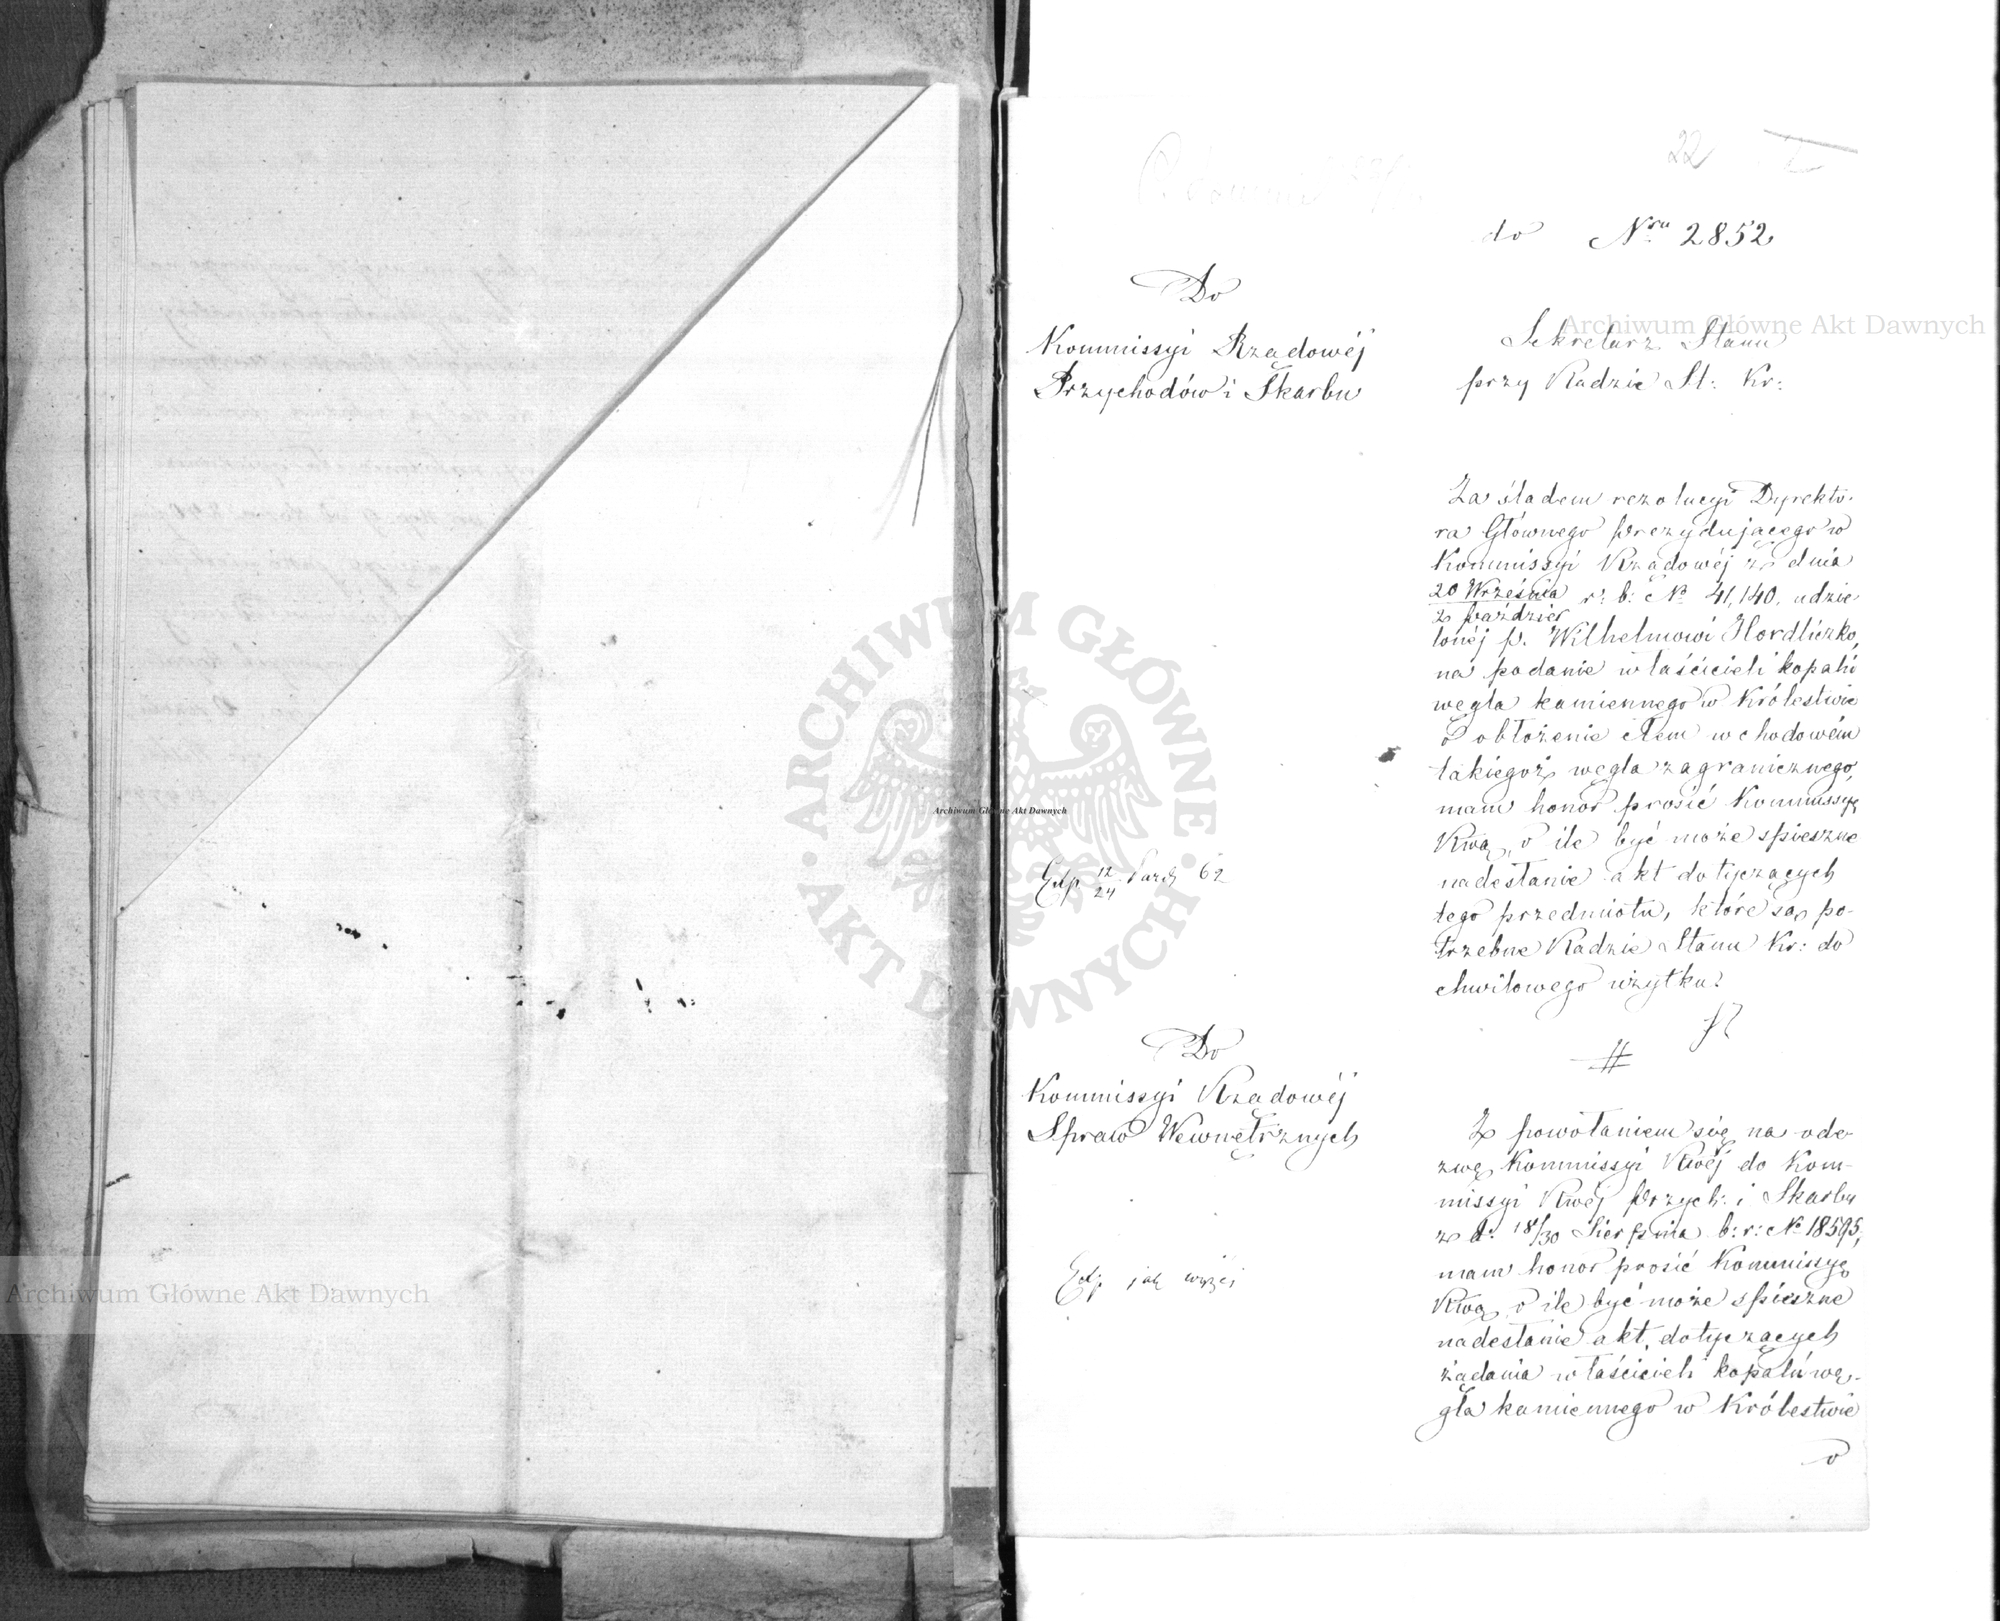 22
do Nru 2852
Do
Kommissyi Rządowéj
Przychodów i Skarbu
Sekretarz Stanu
przy Radzie St: Kr:
Za śladem rezolucyi Dyrekto-
ra Głównego Prezydującego w
Kommissyi Rządowéj z dnia
20 Września r: b: No 41,140, udzie-
2 Paździer
lonéj p. Wilhelmowi Hordliczko,
na podanie właścicieli kopalń
węgla kamiennego w Królestwie
o obłożenie cłem wchodowém
takiegoż węgla zagranicznego,
mam honor prosić Kommissyę
Rwą, o ile być może spieszne
nadesłanie akt dotyczących
tego przedmiotu, które są po-
trzebne Radzie Stanu Kr: do
chwilowego użytku.
Exp 12/24 Paźdź 62
Do
Kommissyi Rządowéj
Spraw Wewnętrznych
Z powołaniem się na ode-
zwę Kommissyi Rwéj do Kom-
missyi Rwéj Przych: i Skarbu
z d. 18/30 Sierpnia b: r: No 18595,
mam honor prosić Kommissyę
Rwą, o ile być może spieszne
nadesłanie akt, dotyczących
żądania właścicieli kopalń wę-
gla kamiennego w Królestwie
o
Exp jak wyżej
Archiwum Główne Akt Dawnych
Archiwum Główne Akt Dawnych
Archiwum Główne Akt Dawnych
ARCHIWUM GŁÓWNE AKT DAWNYCH